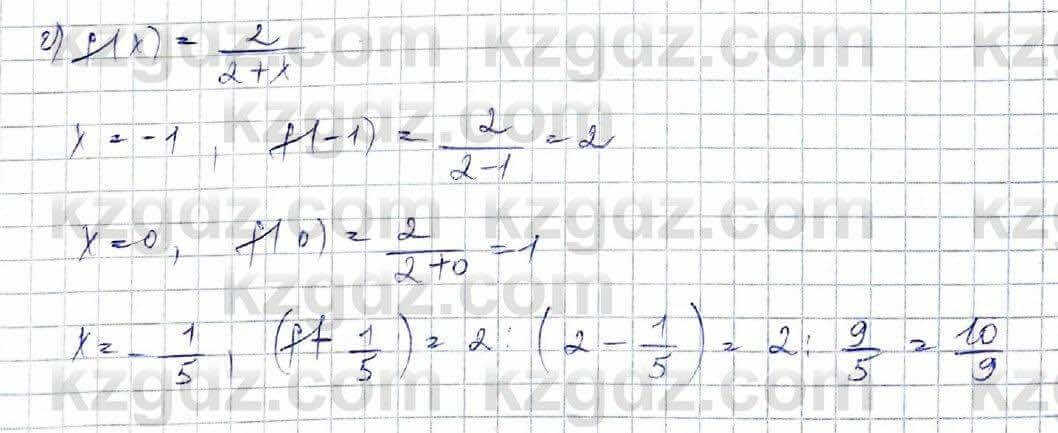 г) f(x) = 2/(2+x)
x = -1, f(-1) = 2/(2-1) = 2
x=0, f(0) = 2/(2+0) = 1
x = -1/5, (f(-1/5) = 2 : (2 - 1/5) = 2 : 9/5 = 10/9
kzgdz.com kzgdz.com kz
kzgdz.com
kzgdz.com kzgdz.com kz
kzgdz.com
kzgdz.com kzgdz.com kz